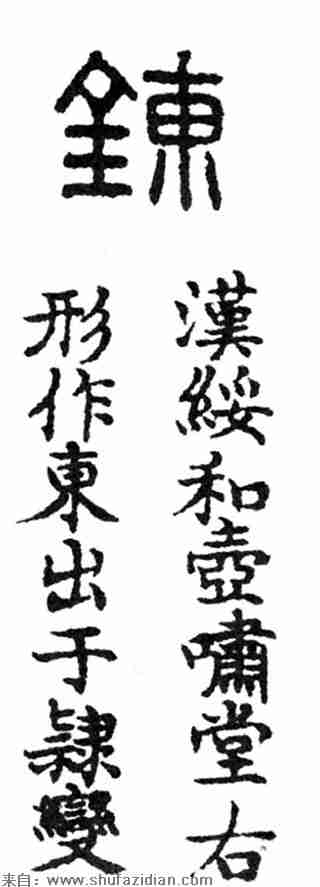 鍊
漢綏和壺嘯堂右
形作東出于隸變
来自：www.shufazidian.com